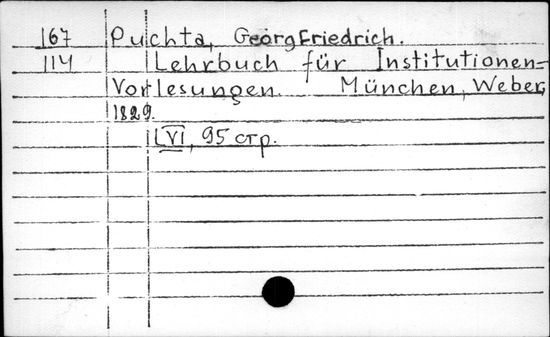 167 Puchta, Georg Friedrich.
114 Lehrbuch für Institutionen-
Vorlesungen München, Weber,
1829.
VI, 95 стр.